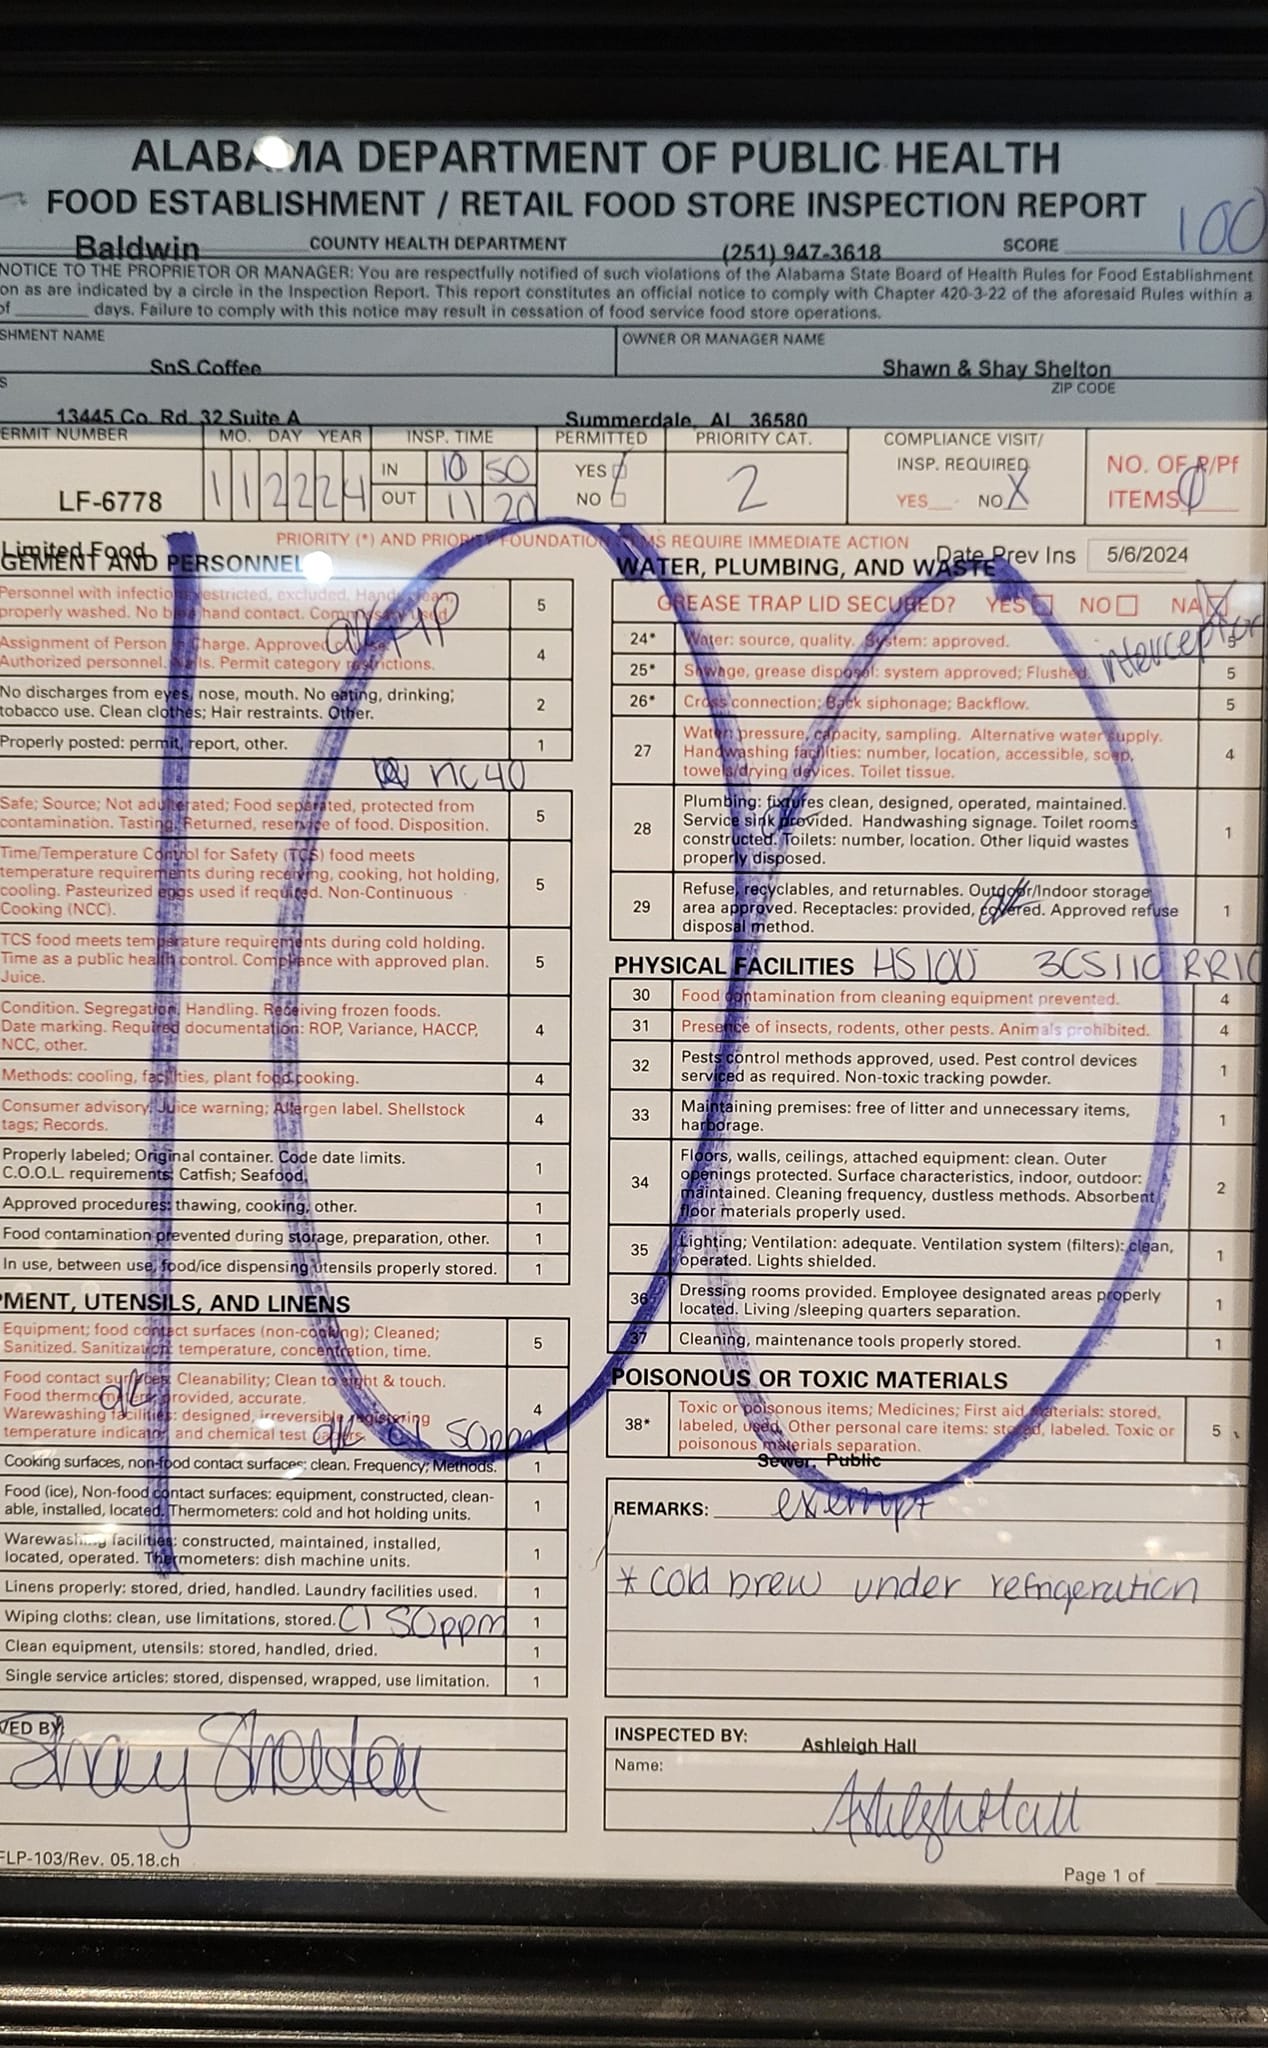 ALABAMA DEPARTMENT OF PUBLIC HEALTH
FOOD ESTABLISHMENT / RETAIL FOOD STORE INSPECTION REPORT
Baldwin COUNTY HEALTH DEPARTMENT (251) 947-3618 SCORE 100
NOTICE TO THE PROPRIETOR OR MANAGER: You are respectfully notified of such violations of the Alabama State Board of Health Rules for Food Establishment
on as are indicated by a circle in the Inspection Report. This report constitutes an official notice to comply with Chapter 420-3-22 of the aforesaid Rules within a
of ______ days. Failure to comply with this notice may result in cessation of food service food store operations.
SHMENT NAME
SnS Coffee
OWNER OR MANAGER NAME
Shawn & Shay Shelton
S
ZIP CODE
13445 Co. Rd. 32 Suite A Summerdale, AL 36580
ERMIT NUMBER
LF-6778
MO. DAY YEAR
11 22 24
INSP. TIME
IN 10 50
OUT 11 20
PERMITTED
YES
NO
PRIORITY CAT.
2
COMPLIANCE VISIT/
INSP. REQUIRED
YES__ NO X
NO. OF P/Pf
ITEMS 0
PRIORITY (*) AND PRIORITY FOUNDATION ITEMS REQUIRE IMMEDIATE ACTION
Limited Food
Date Prev Ins 5/6/2024
GEMENT AND PERSONNEL
Personnel with infections restricted, excluded. Hands clean, 5
properly washed. No bare hand contact. Commissary used.
Assignment of Person in Charge. Approved 4
Authorized personnel. Nails. Permit category restrictions.
No discharges from eyes, nose, mouth. No eating, drinking; 2
tobacco use. Clean clothes; Hair restraints. Other.
Properly posted: permit, report, other. 1
nc40
Safe; Source; Not adulterated; Food separated, protected from 5
contamination. Tasting. Returned, reservice of food. Disposition.
Time/Temperature Control for Safety (TCS) food meets 5
temperature requirements during receiving, cooking, hot holding,
cooling. Pasteurized eggs used if required. Non-Continuous
Cooking (NCC).
TCS food meets temperature requirements during cold holding. 5
Time as a public health control. Compliance with approved plan.
Juice.
Condition. Segregation, Handling. Receiving frozen foods. 4
Date marking. Required documentation: ROP, Variance, HACCP,
NCC, other.
Methods: cooling, facilities, plant food cooking. 4
Consumer advisory; Juice warning; Allergen label. Shellstock 4
tags; Records.
Properly labeled; Original container. Code date limits. 1
C.O.O.L. requirements: Catfish; Seafood.
Approved procedures: thawing, cooking, other. 1
Food contamination prevented during storage, preparation, other. 1
In use, between use, food/ice dispensing utensils properly stored. 1
PMENT, UTENSILS, AND LINENS
Equipment; food contact surfaces (non-cooking); Cleaned; 5
Sanitized. Sanitization: temperature, concentration, time.
Food contact surfaces: Cleanability; Clean to sight & touch. 4
Food thermometers: provided, accurate.
Warewashing facilities: designed, irreversible registering
temperature indicator, and chemical test papers. Cl 50ppm
Cooking surfaces, non-food contact surfaces: clean. Frequency; Methods. 1
Food (ice), Non-food contact surfaces: equipment, constructed, clean- 1
able, installed, located. Thermometers: cold and hot holding units.
Warewashing facilities: constructed, maintained, installed, 1
located, operated. Thermometers: dish machine units.
Linens properly: stored, dried, handled. Laundry facilities used. 1
Wiping cloths: clean, use limitations, stored. Cl 50ppm 1
Clean equipment, utensils: stored, handled, dried. 1
Single service articles: stored, dispensed, wrapped, use limitation. 1
WATER, PLUMBING, AND WASTE
GREASE TRAP LID SECURED? YES NO NA
interceptor
24* Water: source, quality. System: approved. 5
25* Sewage, grease disposal: system approved; Flushed. 5
26* Cross connection; Back siphonage; Backflow. 5
27 Water: pressure, capacity, sampling. Alternative water supply. 4
Handwashing facilities: number, location, accessible, soap,
towels/drying devices. Toilet tissue.
28 Plumbing: fixtures clean, designed, operated, maintained. 1
Service sink provided. Handwashing signage. Toilet rooms
constructed. Toilets: number, location. Other liquid wastes
properly disposed.
29 Refuse, recyclables, and returnables. Outdoor/Indoor storage 1
area approved. Receptacles: provided, covered. Approved refuse
disposal method.
PHYSICAL FACILITIES HS100 3CS110
30 Food contamination from cleaning equipment prevented. 4
31 Presence of insects, rodents, other pests. Animals prohibited. 4
32 Pests control methods approved, used. Pest control devices 1
serviced as required. Non-toxic tracking powder.
33 Maintaining premises: free of litter and unnecessary items, 1
harborage.
34 Floors, walls, ceilings, attached equipment: clean. Outer 2
openings protected. Surface characteristics, indoor, outdoor:
maintained. Cleaning frequency, dustless methods. Absorbent
floor materials properly used.
35 Lighting; Ventilation: adequate. Ventilation system (filters): clean, 1
operated. Lights shielded.
36 Dressing rooms provided. Employee designated areas properly 1
located. Living /sleeping quarters separation.
37 Cleaning, maintenance tools properly stored. 1
POISONOUS OR TOXIC MATERIALS
38* Toxic or poisonous items; Medicines; First aid materials: stored, 5
labeled, used. Other personal care items: stored, labeled. Toxic or
poisonous materials separation.
Sewer, Public
REMARKS: exempt
* cold brew under refrigeration
100
VED BY:
Shay Shelton
INSPECTED BY: Ashleigh Hall
Name:
Ashleigh Hall
FLP-103/Rev. 05.18.ch
Page 1 of